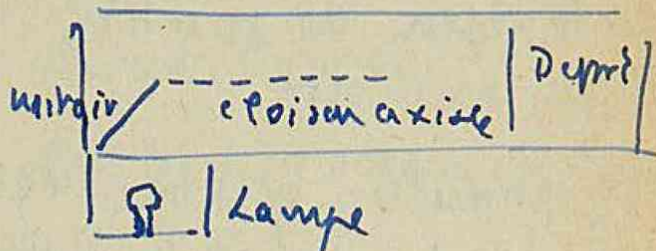 miroir
cloison axiale
Depré
Lampe